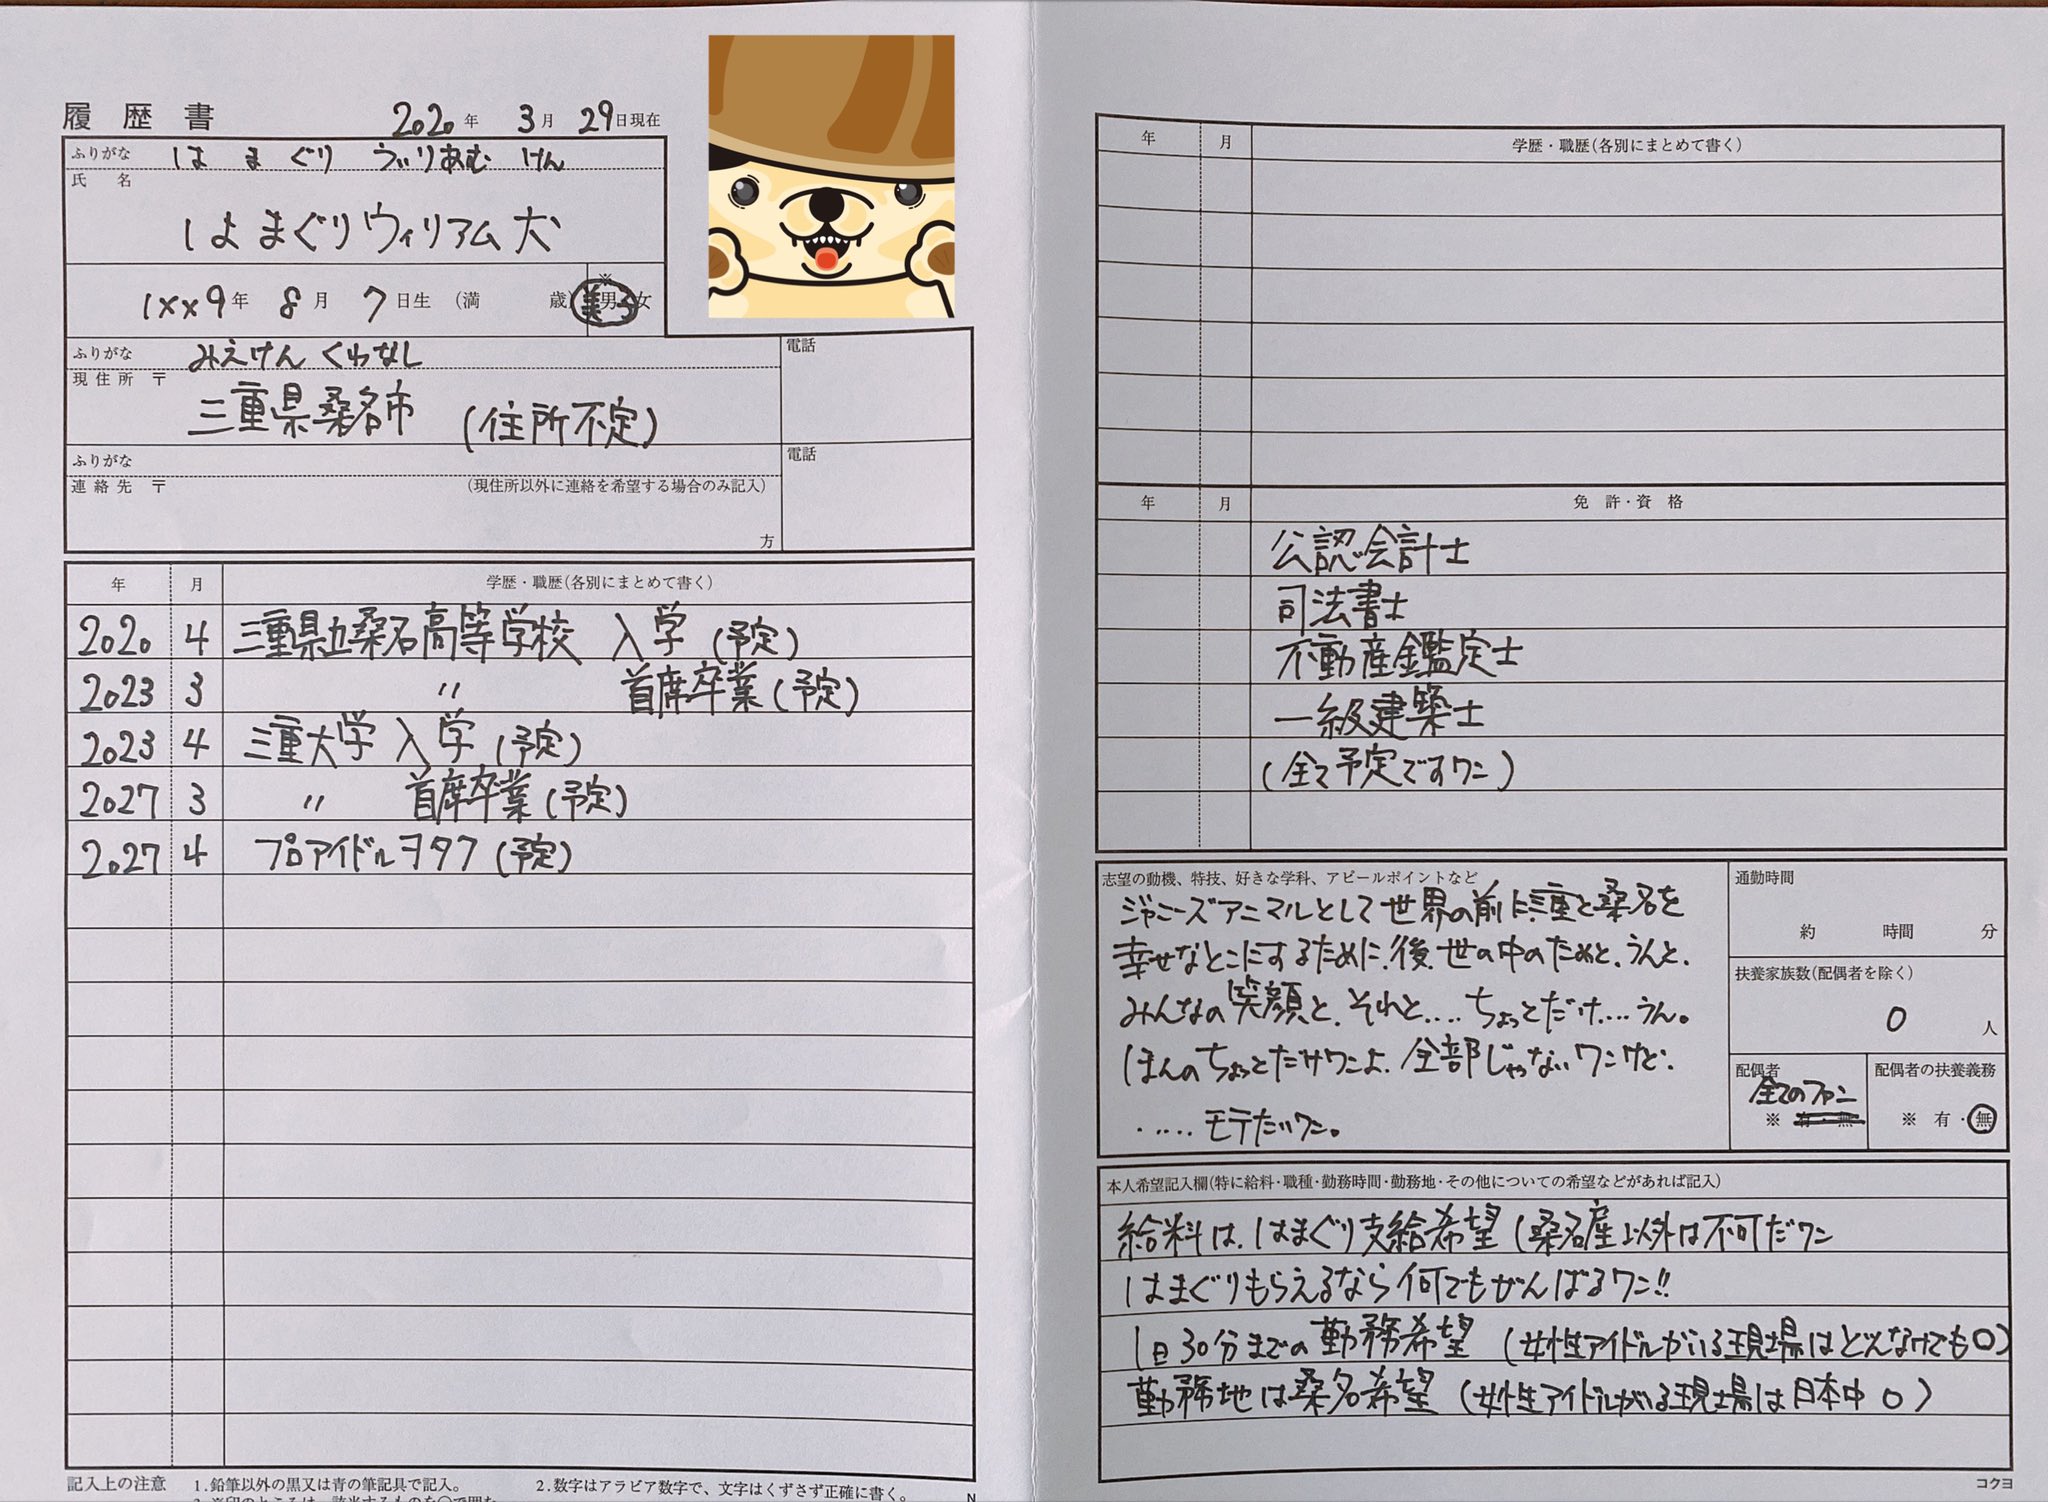 履歴書 2020年 3月 29日現在
ふりがな はまぐり うぃりあむ けん
氏名
はまぐりウィリアム犬
1××9年 8月 7日生 (満 歳) ※ 男・女
ふりがな みえけん くわなし
電話
現住所 〒
三重県桑名市 (住所不定)
ふりがな
電話
連絡先 〒 (現住所以外に連絡を希望する場合のみ記入)
方
年 月 学歴・職歴(各別にまとめて書く)
2020 4 三重県立桑名高等学校 入学 (予定)
2023 3 〃 首席卒業 (予定)
2023 4 三重大学 入学 (予定)
2027 3 〃 首席卒業 (予定)
2027 4 プロアイドルヲタク (予定)
記入上の注意 1.鉛筆以外の黒又は青の筆記具で記入。 2.数字はアラビア数字で、文字はくずさず正確に書く。
N
年 月 学歴・職歴(各別にまとめて書く)
年 月 免許・資格
公認会計士
司法書士
不動産鑑定士
一級建築士
(全て予定ですワン)
志望の動機、特技、好きな学科、アピールポイントなど
ジャニーズアニマルとして世界の前に三重と桑名を
幸せなとこにするために、後、世の中のためと、うんと、
みんなの笑顔と、それと....ちょっとだけ....うん。
ほんのちょっとだけワンよ、全部じゃないワンけど、
.....モテたいワン。
通勤時間
約 時間 分
扶養家族数(配偶者を除く)
0 人
配偶者
全てのファン
※ 有・無
配偶者の扶養義務
※ 有・無
本人希望記入欄(特に給料・職種・勤務時間・勤務地・その他についての希望などがあれば記入)
給料は、はまぐり支給希望 (桑名産以外は不可だワン
はまぐりもらえるなら何でもがんばるワン!!
1日30分までの勤務希望 (女性アイドルがいる現場はどんなけでも○)
勤務地は桑名希望 (女性アイドルがいる現場は日本中○)
コクヨ